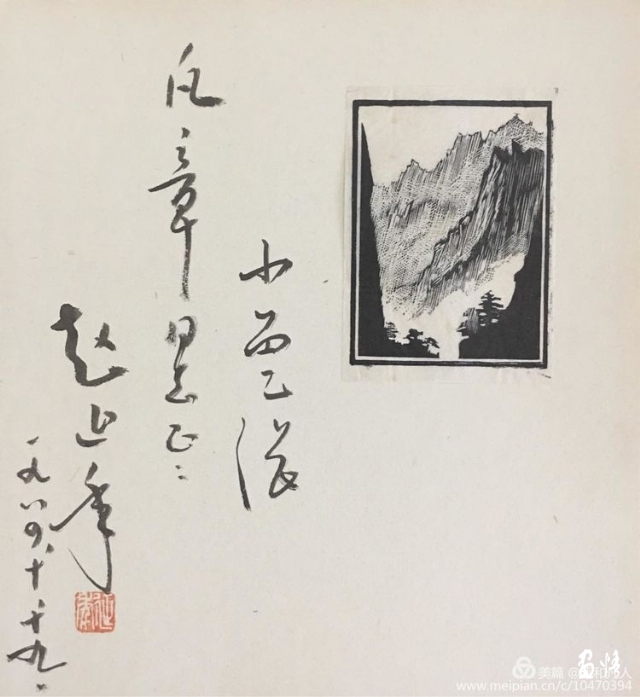 小
凡章同志正
赵延年
一九八四、十、十九
延年
美篇
www.meipian.cn/c/10470394